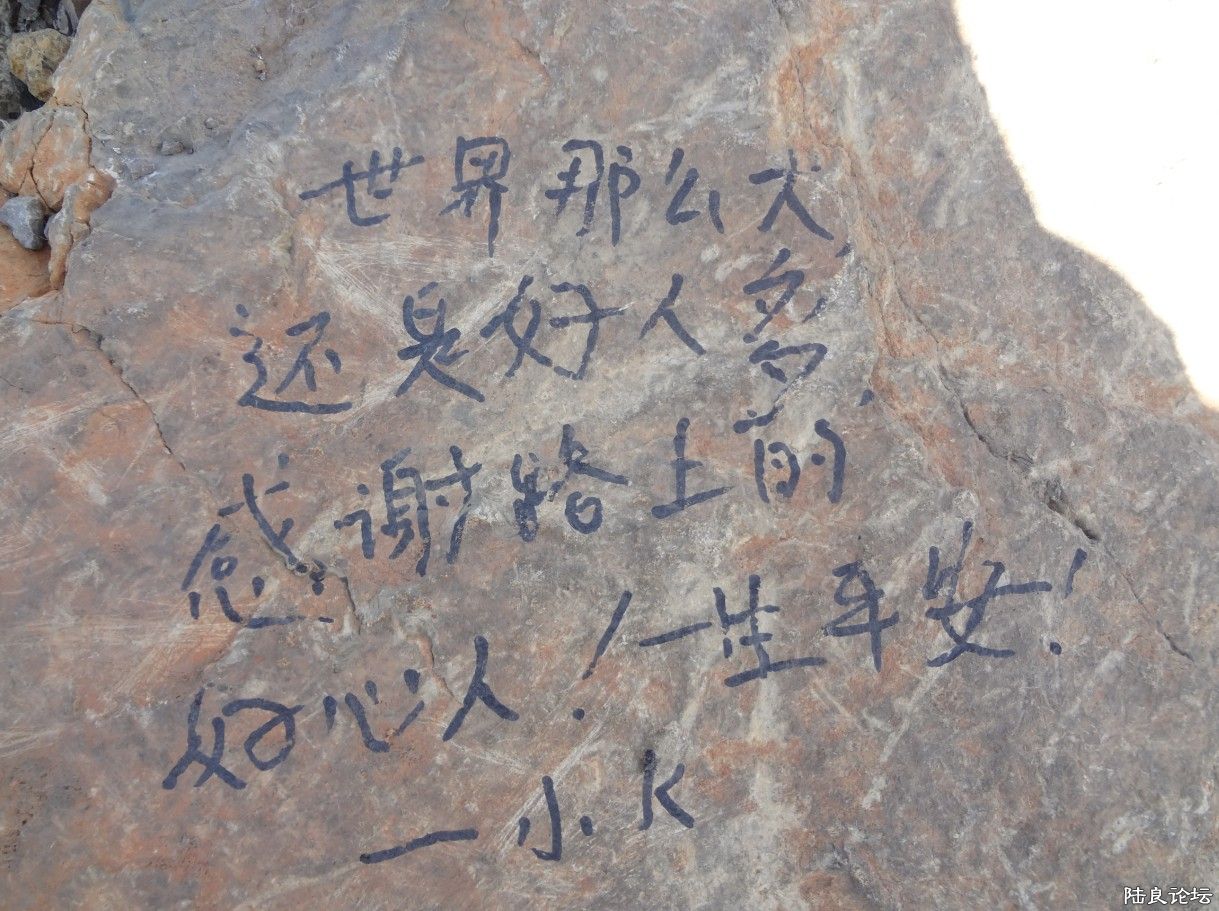 世界那么大,
还是好人多,
感谢路上的
好心人!一生平安!
—小K
陆良论坛